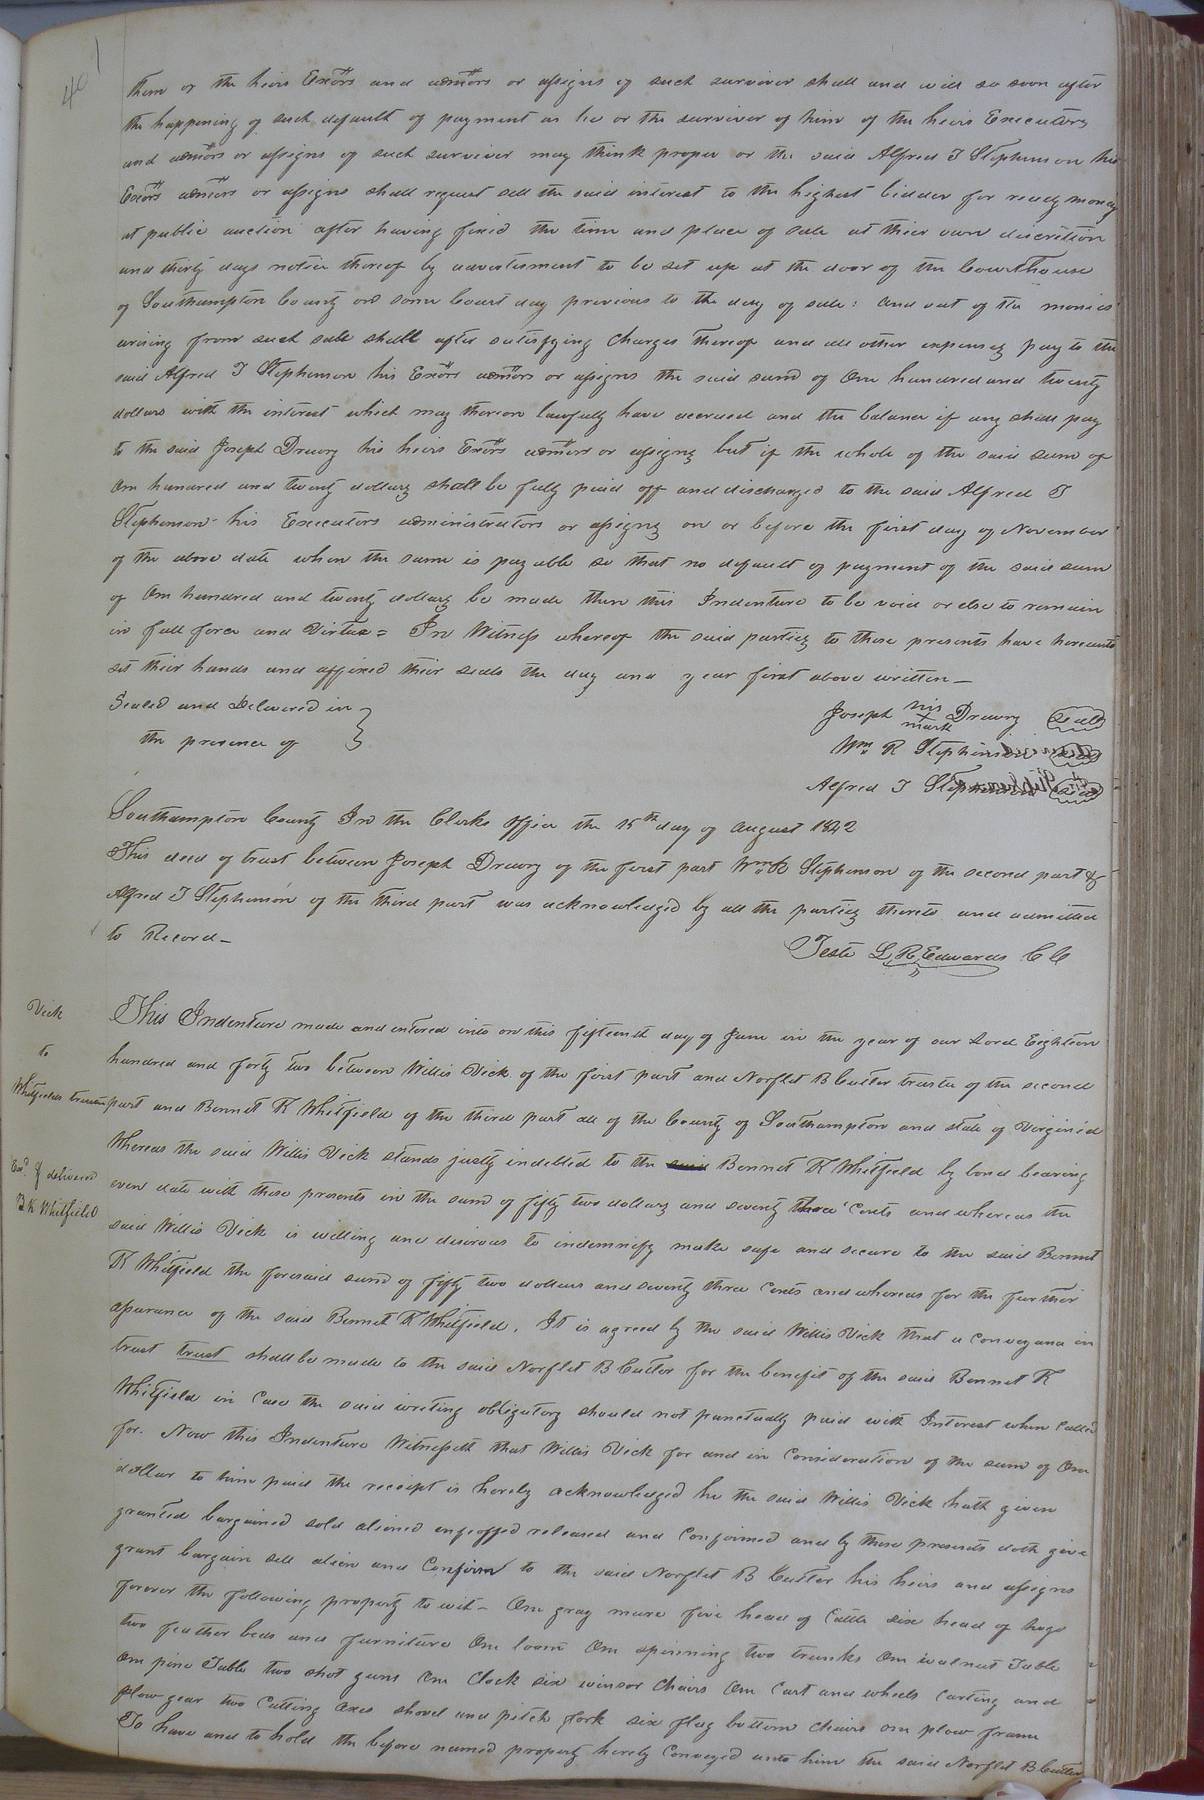 401
them or the heirs Exors and admors or assigns of such surviver shall and will so soon after
the happening of such default of payment as he or the surviver of him of the heirs Executors
and admors or assigns of such surviver may think proper or the said Alfred J Stephenson his
Exors admors or assigns shall request sell the said interest to the highest bidder for ready money
at public auction after having fixed the time and place of sale at their own discretion
and thirty days notice thereof by advertisment to be set up at the door of the Courthouse
of Southampton County on some Court day previous to the day of sale: and out of the monies
arising from such sale shall after satisfying charges thereof and all other expenses pay to the
said Alfred J Stephenson his Exors admors or assigns the said sum of One hundred and twenty
dollars with the interest which may thereon lawfully have accrued and the balance if any shall pay
to the said Joseph Drewry his heirs Exors admors or assigns but if the whole of the said sum of
One hundred and twenty dollars shall be fully paid off and discharged to the said Alfred J
Stephenson his Executors administrators or assigns on or before the first day of November
of the above date when the same is payable so that no default of payment of the said sum
of One hundred and twenty dollars be made then this Indenture to be void or else to remain
in full force and Virtue = In Witness whereof the said parties to these presents have hereunto
set their hands and affixed their seals the day and year first above written
Sealed and Delivered in
the presence of
Joseph his mark Drewry seal
Wm R Stephenson seal
Alfred J Stephenson seal
Southampton County In the Clerks Office the 15th day of August 1842
This deed of trust between Joseph Drewry of the first part Wm R Stephenson of the second part &
Alfred J Stephenson of the third part was acknowledged by all the parties thereto and admitted
to Record
Teste L R Edwards CC
Vick
to
Whitfields trustee
Exd & delivered
B K Whitfield
This Indenture made and entered into on this fifteenth day of June in the year of our Lord Eighteen
hundred and forty two between Willis Vick of the first part and Norflet B Cutler trustee of the second
part and Bennet K Whitfield of the third part all of the County of Southampton and state of Virginia
Whereas the said Willis Vick stands justly indebted to the said Bennet K Whitfield by bond bearing
even date with these presents in the sum of fifty two dollars and seventy three Cents and whereas the
said Willis Vick is willing and disirous to indemnify make safe and secure to the said Bennet
K Whitfield the foresaid sum of fifty two dollars and seventy three Cents and whereas for the further
assurance of the said Bennet K Whitfield. It is agreed by the said Willis Vick that a Conveyance in
trust trust shall be made to the said Norflet B Cutler for the benefit of the said Bennet K
Whitfield in Case the said writing obligatory should not punctually paid with Interest when Called
for. Now this Indenture Witnesseth that Willis Vick for and in Consideration of the sum of One
dollar to him paid the receipt is hereby acknowledged he the said Willis Vick hath given
granted bargained sold aliened enfeoffed released and Confirmed and by these presents doth give
grant bargain sell alien and Confirm to the said Norflet B Cutler his heirs and assigns
forever the following property to wit - One gray mare five head of Cattle six head of hogs
two feather beds and furniture One loom One spinning two trunks One walnut Table
One pine Table two shot guns One Clock six winsor Chairs One Cart and wheels Carting and
plow gear two Cutting axes shovel and pitch fork six flag bottom Chairs one plow frame
To have and to hold the before named property hereby Conveyed unto him the said Norflet B Cutler